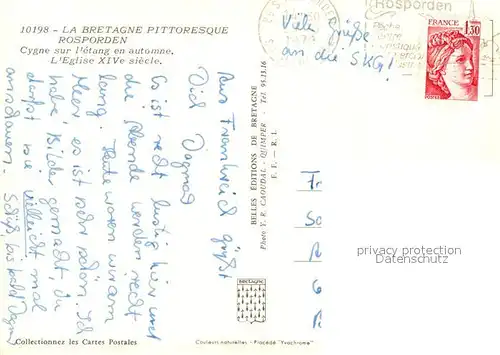 10198 - LA BRETAGNE PITTORESQUE
ROSPORDEN
Cygne sur l'étang en automne.
L'Eglise XIVe siècle.
Viele Grüße
an die SKG!
Rosporden
1,30
Aus Frankreich grüßt
Dich Dagmar
Es ist recht lustig hier und
die Abende werden recht
lang. Heute waren wir am
Meer, es ist sehr schön. Ich
habe Bilder gemacht, du
darfst sie vielleicht mal
anschauen. Tschüß, bis bald Dagmar
BELLES ÉDITIONS DE BRETAGNE
Photo Y. R. CAOUDAL - QUIMPER - Tel 95.13.16
F. F. - R. I.
bretagne
privacy protection
Datenschutz
Collectionnez les Cartes Postales
Couleurs naturelles - Procédé "Yvochrome"